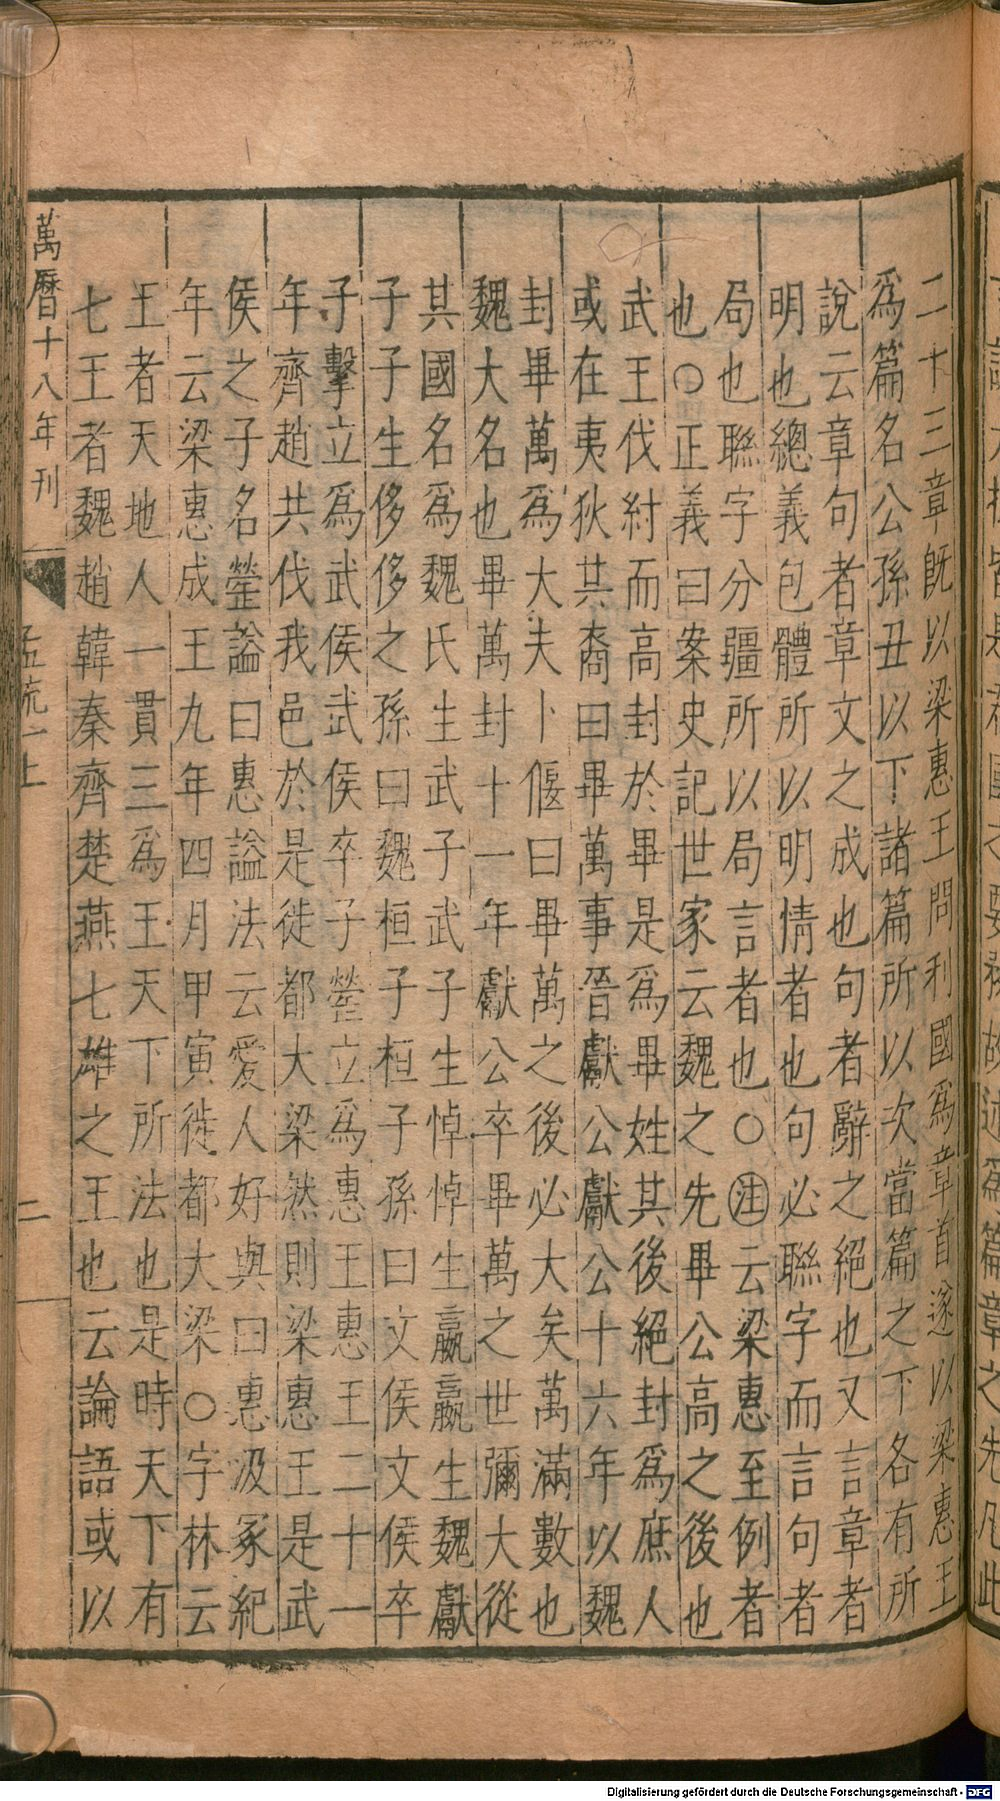 二十三章旣以梁惠王問利國爲章首遂以梁惠王
爲篇名公孫丑以下諸篇所以次當篇之下各有所
說云章句者章文之成也句者辭之絕也又言章者
明也總義包體所以明情者也句必聯字而言句者
局也聯字分疆所以局言者也○注云梁惠至例者
也○正義曰案史記世家云魏之先畢公高之後也
武王伐紂而高封於畢是爲畢姓其後絕封爲庶人
或在夷狄其裔曰畢萬事晉獻公獻公十六年以魏
封畢萬爲大夫卜偃曰畢萬之後必大矣萬滿數也
魏大名也畢萬封十一年獻公卒畢萬之世彌大從
其國名爲魏氏生武子武子生悼悼生嬴嬴生魏獻
子子生侈侈之孫曰魏桓子桓子孫曰文侯文侯卒
子擊立爲武侯武侯卒子罃立爲惠王惠王二十一
年齊趙共伐我邑於是徙都大梁然則梁惠王是武
侯之子名罃謚曰惠謚法云愛人好與曰惠汲冢紀
年云梁惠成王九年四月甲寅徙都大梁○字林云
王者天地人一貫三爲王天下所法也是時天下有
七王者魏趙韓秦齊楚燕七雄之王也云論語或以
萬曆十八年刊
孟疏一上
二
Digitalisierung gefördert durch die Deutsche Forschungsgemeinschaft - DFG